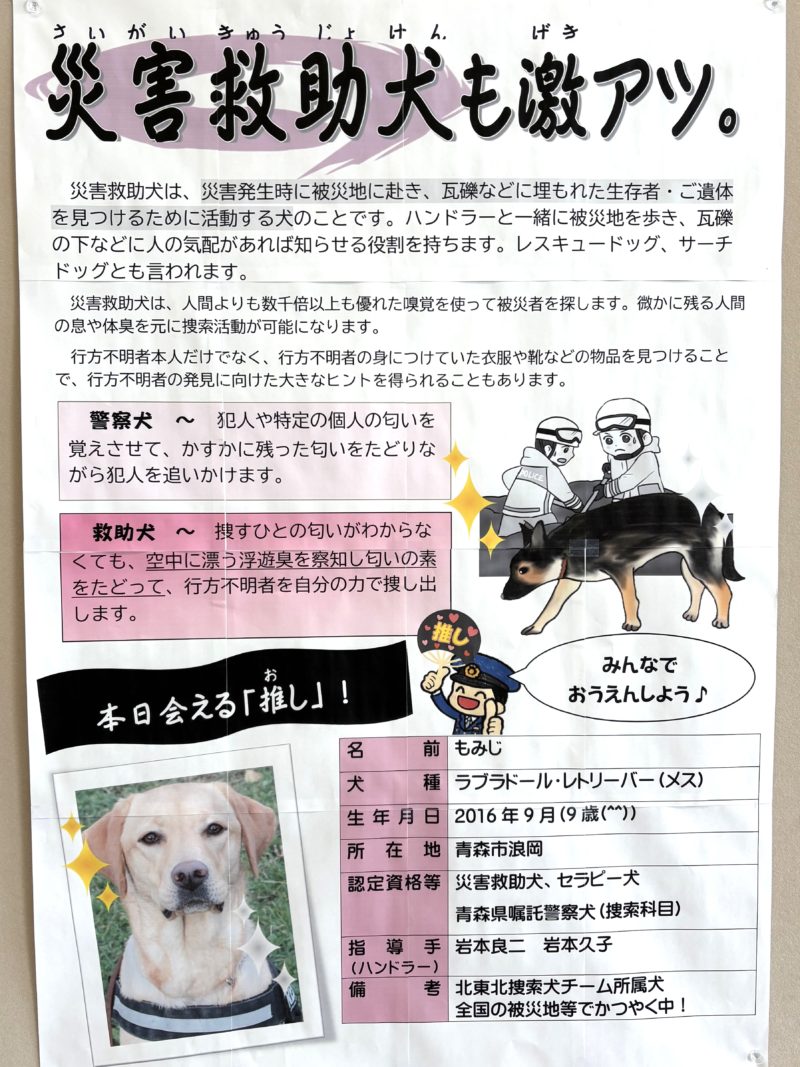 さいがいきゅうじょけん げき
災害救助犬も激アツ。
災害救助犬は、災害発生時に被災地に赴き、瓦礫などに埋もれた生存者・ご遺体
を見つけるために活動する犬のことです。ハンドラーと一緒に被災地を歩き、瓦礫
の下などに人の気配があれば知らせる役割を持ちます。レスキュードッグ、サーチ
ドッグとも言われます。
災害救助犬は、人間よりも数千倍以上も優れた嗅覚を使って被災者を探します。微かに残る人間
の息や体臭を元に捜索活動が可能になります。
行方不明者本人だけでなく、行方不明者の身につけていた衣服や靴などの物品を見つけること
で、行方不明者の発見に向けた大きなヒントを得られることもあります。
警察犬 ～ 犯人や特定の個人の匂いを
覚えさせて、かすかに残った匂いをたどりな
がら犯人を追いかけます。
POLICE
救助犬 ～ 捜すひとの匂いがわからな
くても、空中に漂う浮遊臭を察知し匂いの素
をたどって、行方不明者を自分の力で捜し出
します。
推し
みんなで
おうえんしよう♪
お
本日会える「推し」！
名前 もみじ
犬種 ラブラドール・レトリーバー（メス）
生年月日 2016年9月(9歳(^^))
所在地 青森市浪岡
認定資格等 災害救助犬、セラピー犬
青森県嘱託警察犬（捜索科目）
指導手 岩本良二 岩本久子
（ハンドラー）
備考 北東北捜索犬チーム所属犬
全国の被災地等でかつやく中！